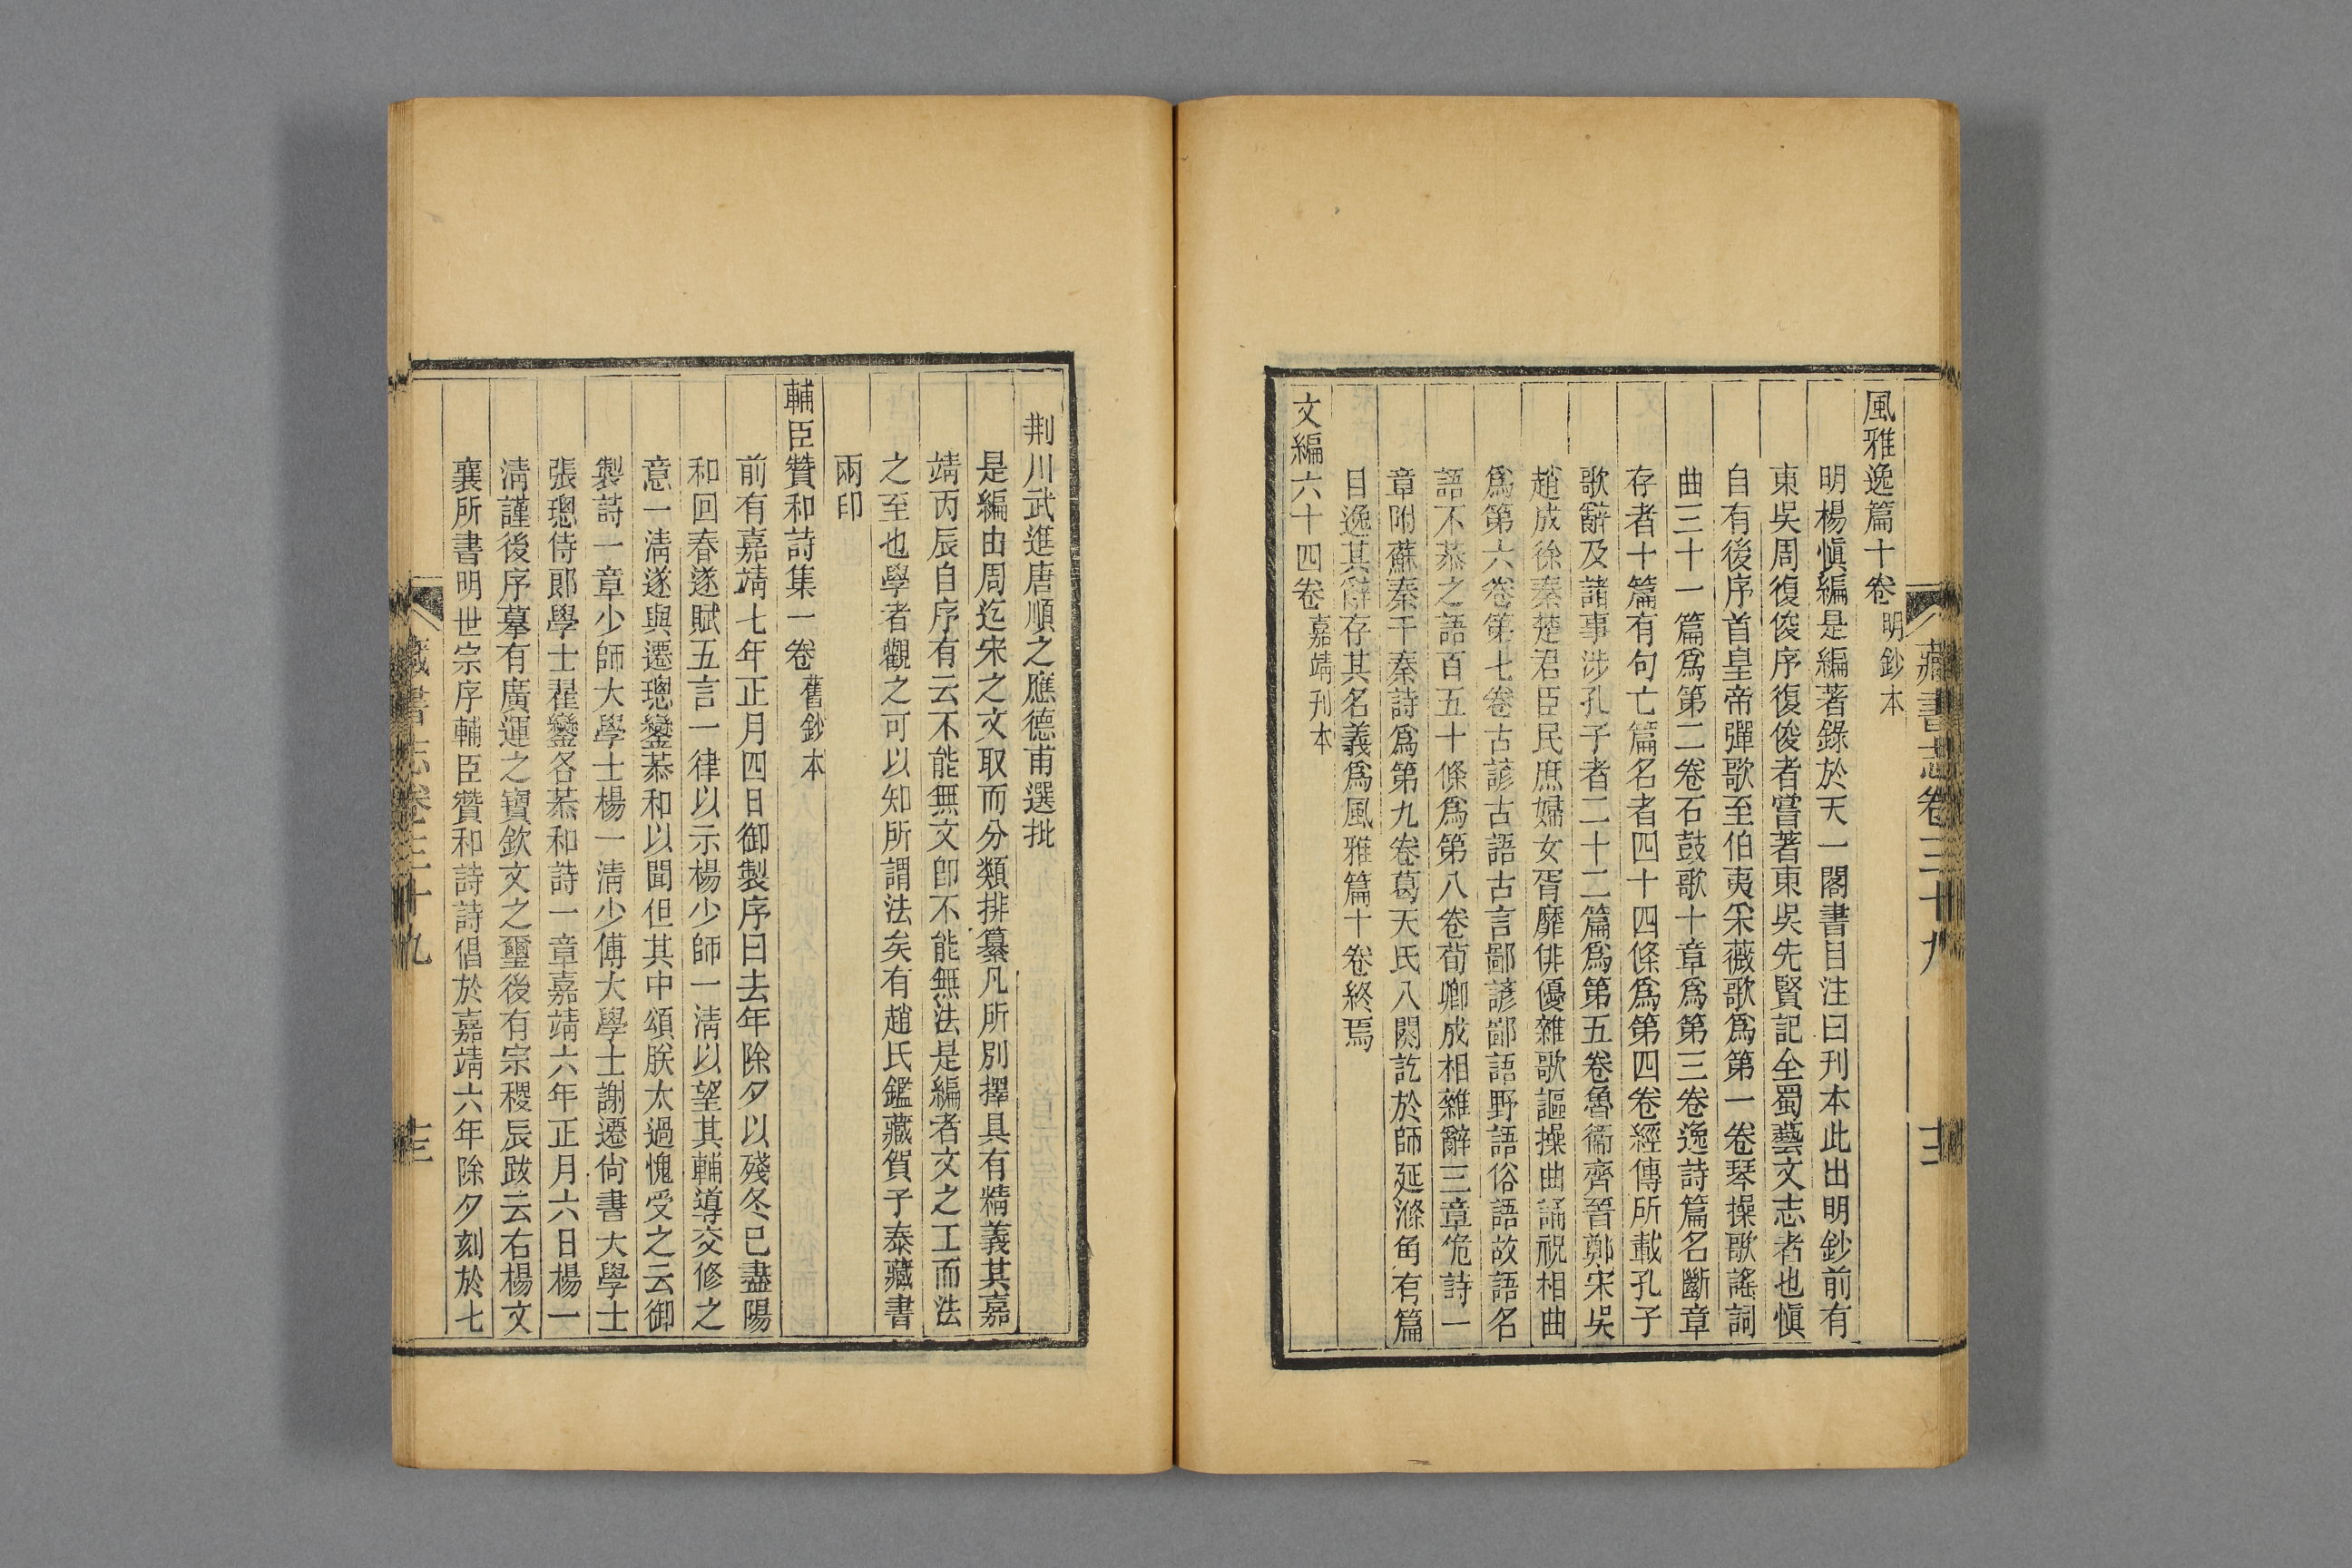 藏書志卷三十九
風雅逸篇十卷明鈔本
明楊愼編是編著錄於天一閣書目注曰刊本此出明鈔前有
東吳周復俊序復俊者嘗著東吳先賢記全蜀藝文志者也愼
自有後序首皇帝彈歌至伯夷采薇歌爲第一卷琴操歌謠詞
曲三十一篇爲第二卷石鼓歌十章爲第三卷逸詩篇名斷章
存者十篇有句亡篇名者四十四條爲第四卷經傳所載孔子
歌辭及諸事涉孔子者二十二篇爲第五卷魯衞齊晉鄭宋吳
趙成徐秦楚君臣民庶婦女胥靡俳優雜歌謳操曲誦祝相曲
爲第六卷第七卷古諺古語古言鄙諺鄙語野語俗語故語名
語不恭之語百五十條爲第八卷荀卿成相雜辭三章佹詩一
章附蘇秦干秦詩爲第九卷葛天氏八闋訖於師延滌角有篇
目逸其辭存其名義爲風雅篇十卷終焉
文編六十四卷嘉靖刊本
荆川武進唐順之應德甫選批
是編由周迄宋之文取而分類排纂凡所別擇具有精義其嘉
靖丙辰自序有云不能無文卽不能無法是編者文之工而法
之至也學者觀之可以知所謂法矣有趙氏鑑藏賀子泰藏書
兩印
輔臣贊和詩集一卷舊鈔本
前有嘉靖七年正月四日御製序曰去年除夕以殘冬已盡陽
和回春遂賦五言一律以示楊少師一淸以望其輔導交修之
意一淸遂與遷璁鑾恭和以聞但其中頌朕太過愧受之云御
製詩一章少師大學士楊一淸少傅大學士謝遷尙書大學士
張璁侍郎學士翟鑾各恭和詩一章嘉靖六年正月六日楊一
淸謹後序摹有廣運之寶欽文之璽後有宗稷辰跋云右楊文
襄所書明世宗序輔臣贊和詩詩倡於嘉靖六年除夕刻於七
藏書志卷三十九